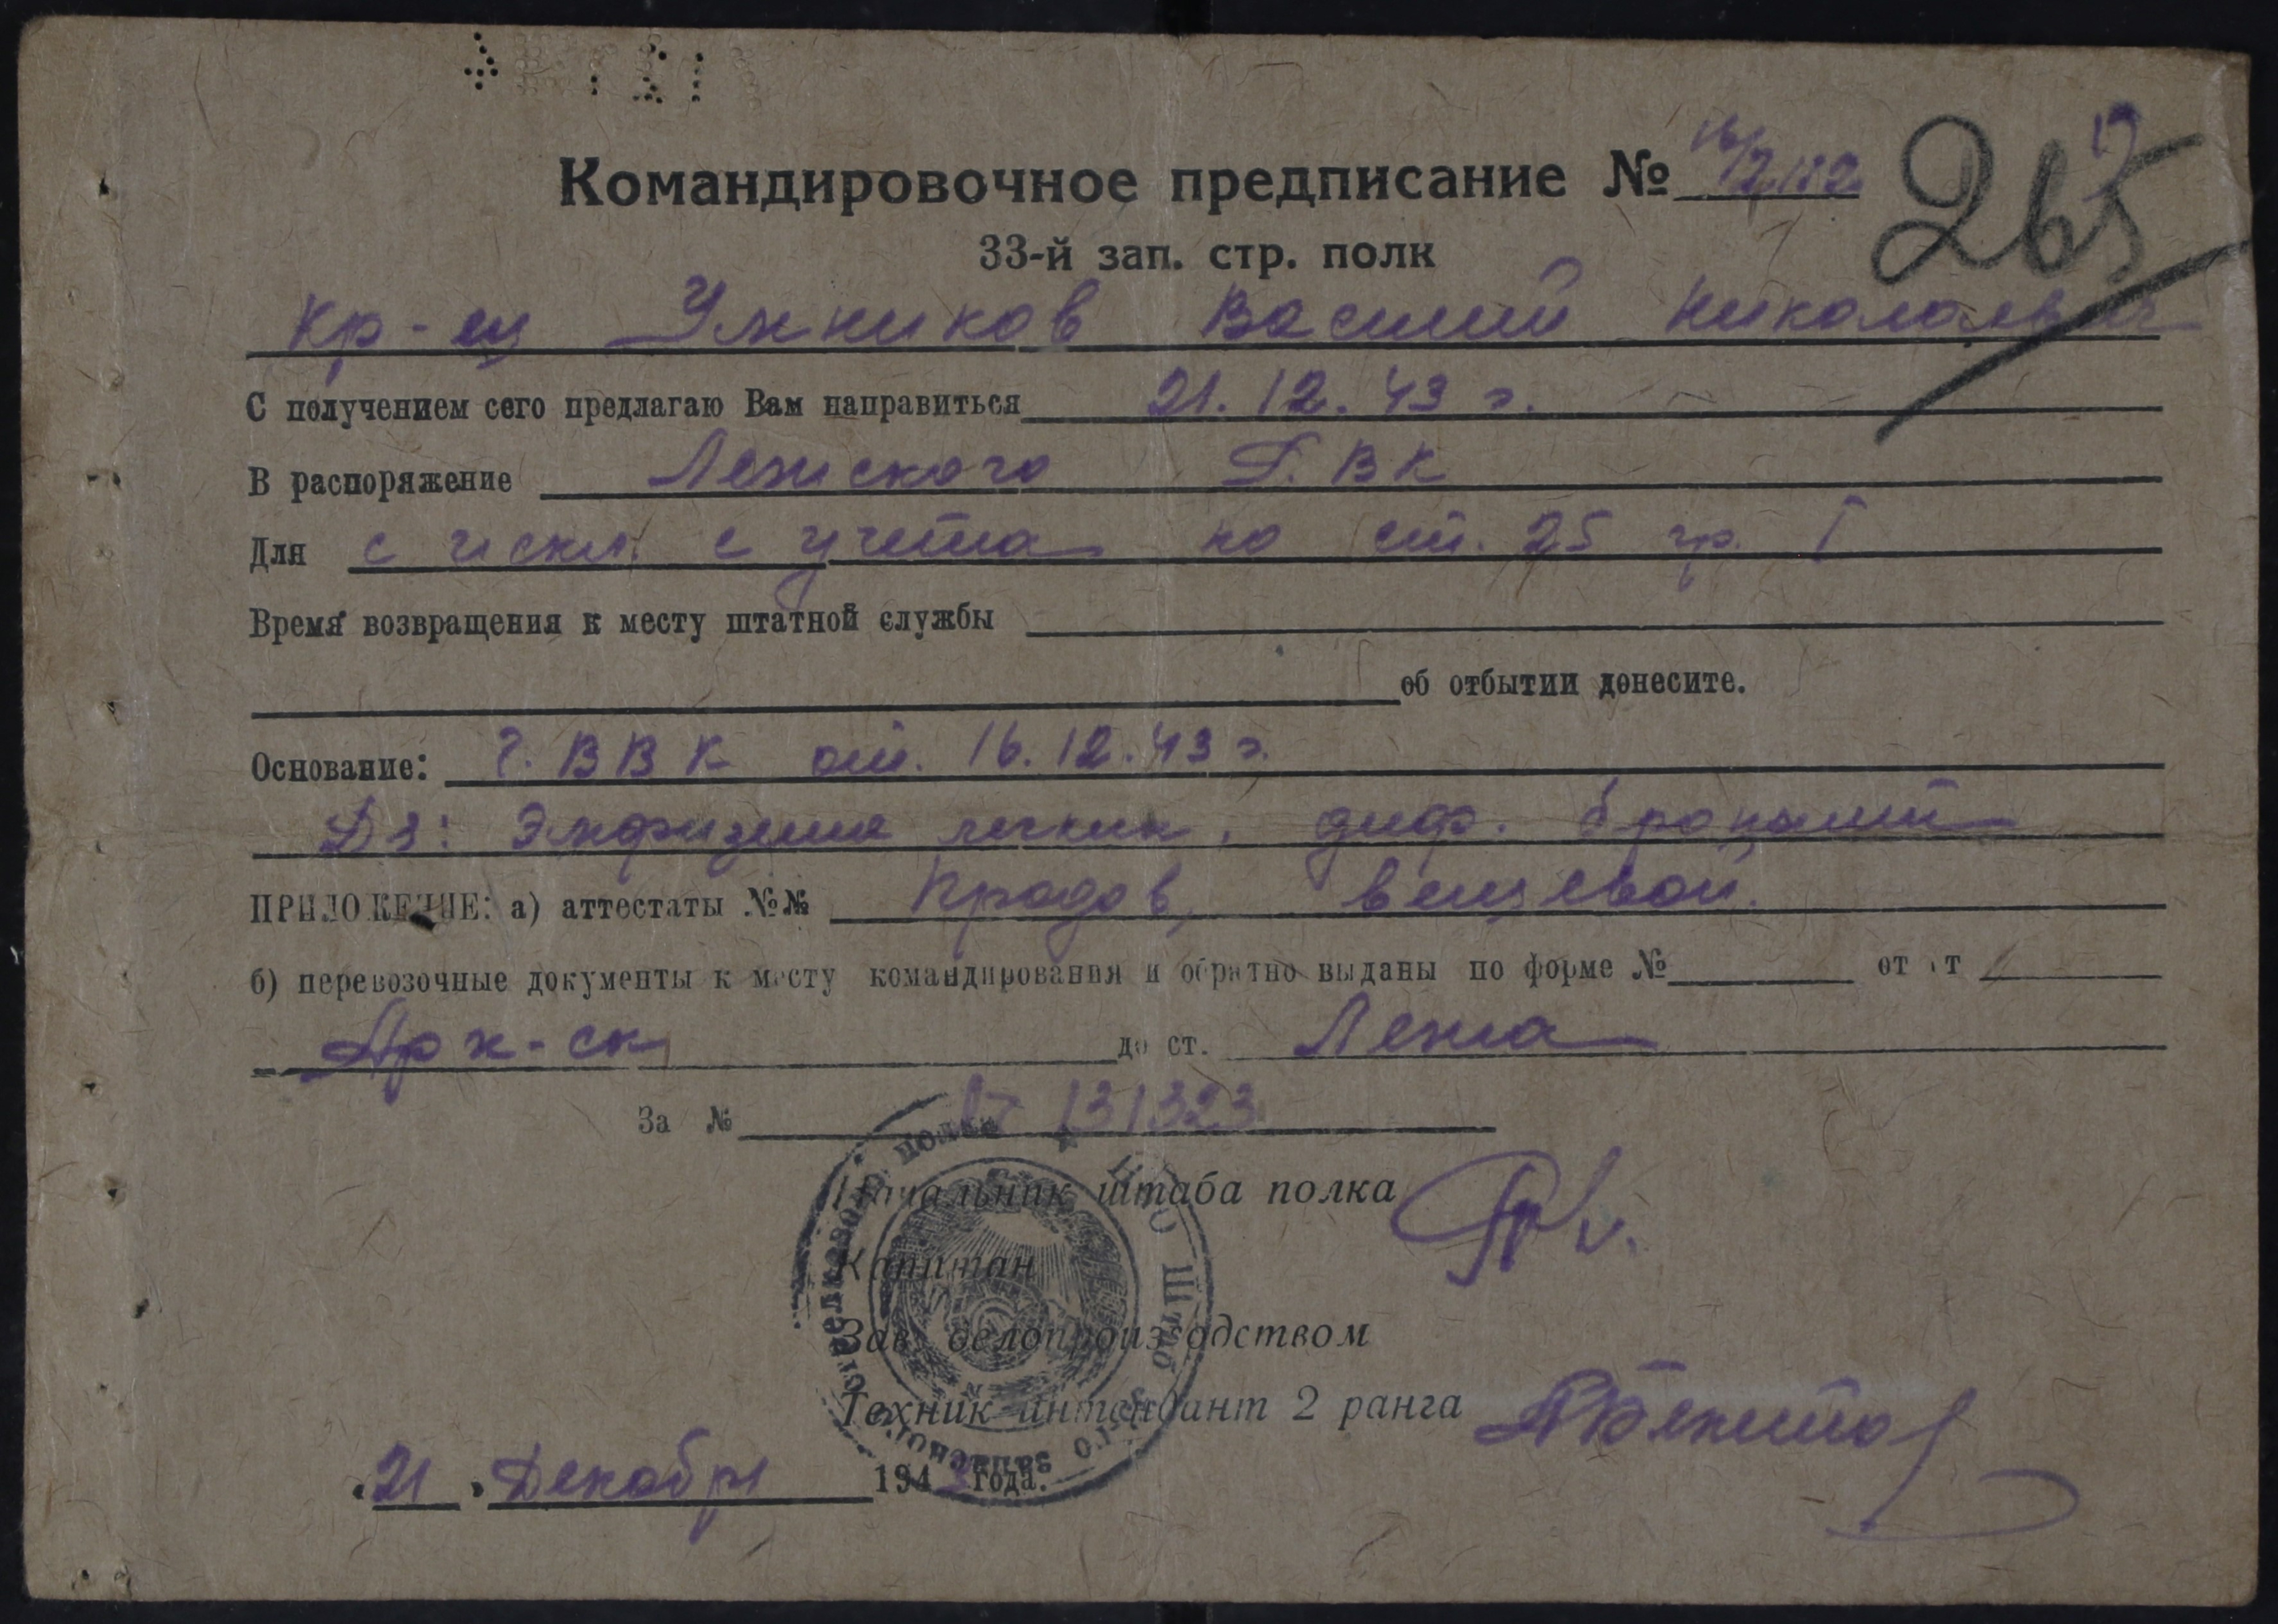 265
Командировочное предписание №
33-й зап. стр. полк
Кр-ец Умников Василий Николаевич
С получением сего предлагаю Вам направиться 21.12.43 г.
В распоряжение Лежского Р.В.К
Для с искл. с учета по ст. 25 гр. I
Время возвращения к месту штатной службы
об отбытии донесите.
Основание: Г.ВВК от. 16.12.43 г.
Дз: Эмфизема легких, диф. бронхит
ПРИЛОЖЕНИЕ: а) аттестаты №№ Продов, вещевой.
б) перевозочные документы к месту командирования и обратно выданы по форме № от ст
Арх-ск до ст. Лежа
За № 131323
Начальник штаба полка
Капитан
Зав. делопроизводством
Техник-интендант 2 ранга
21 Декабря 1943 года.
Штаб запасного стрелкового полка